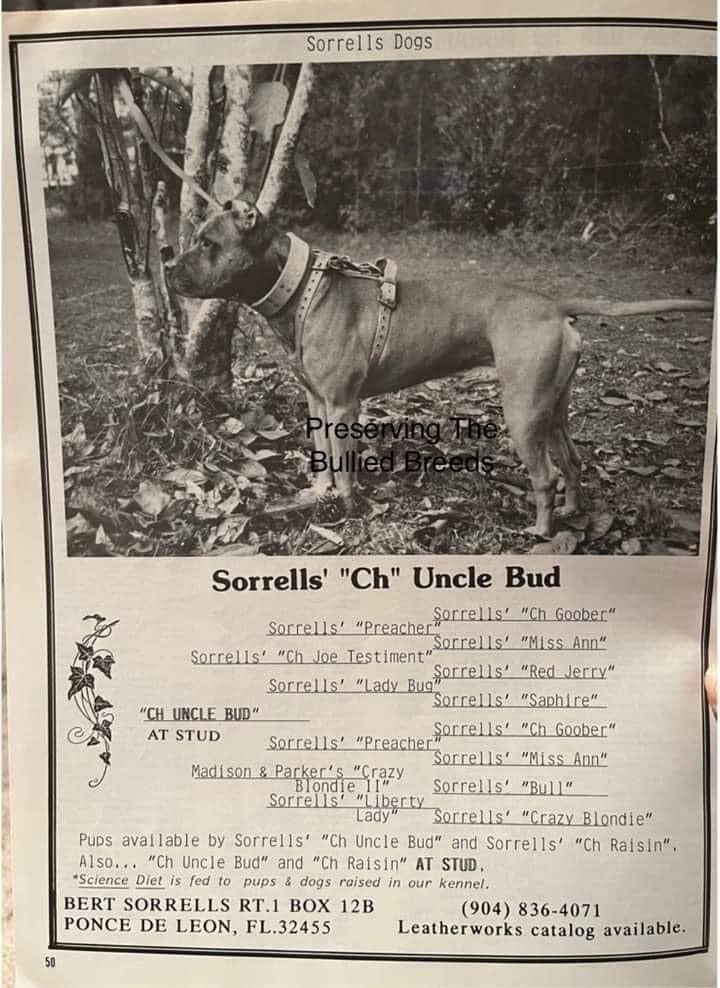 Sorrells Dogs
Preserving The
Bullied Breeds
Sorrells' "Ch" Uncle Bud
Sorrells' "Ch Goober"
Sorrells' "Preacher"
Sorrells' "Miss Ann"
Sorrells' "Ch Joe Testiment"
Sorrells' "Red Jerry"
Sorrells' "Lady Bug"
Sorrells' "Saphire"
"CH UNCLE BUD"
AT STUD
Sorrells' "Ch Goober"
Sorrells' "Preacher"
Sorrells' "Miss Ann"
Madison & Parker's "Crazy
Blondie II"
Sorrells' "Bull"
Sorrells' "Liberty
Lady"
Sorrells' "Crazy Blondie"
Pups available by Sorrells' "Ch Uncle Bud" and Sorrells' "Ch Raisin".
Also... "Ch Uncle Bud" and "Ch Raisin" AT STUD.
*Science Diet is fed to pups & dogs raised in our kennel.
BERT SORRELLS RT.1 BOX 12B
(904) 836-4071
PONCE DE LEON, FL.32455
Leatherworks catalog available.
50